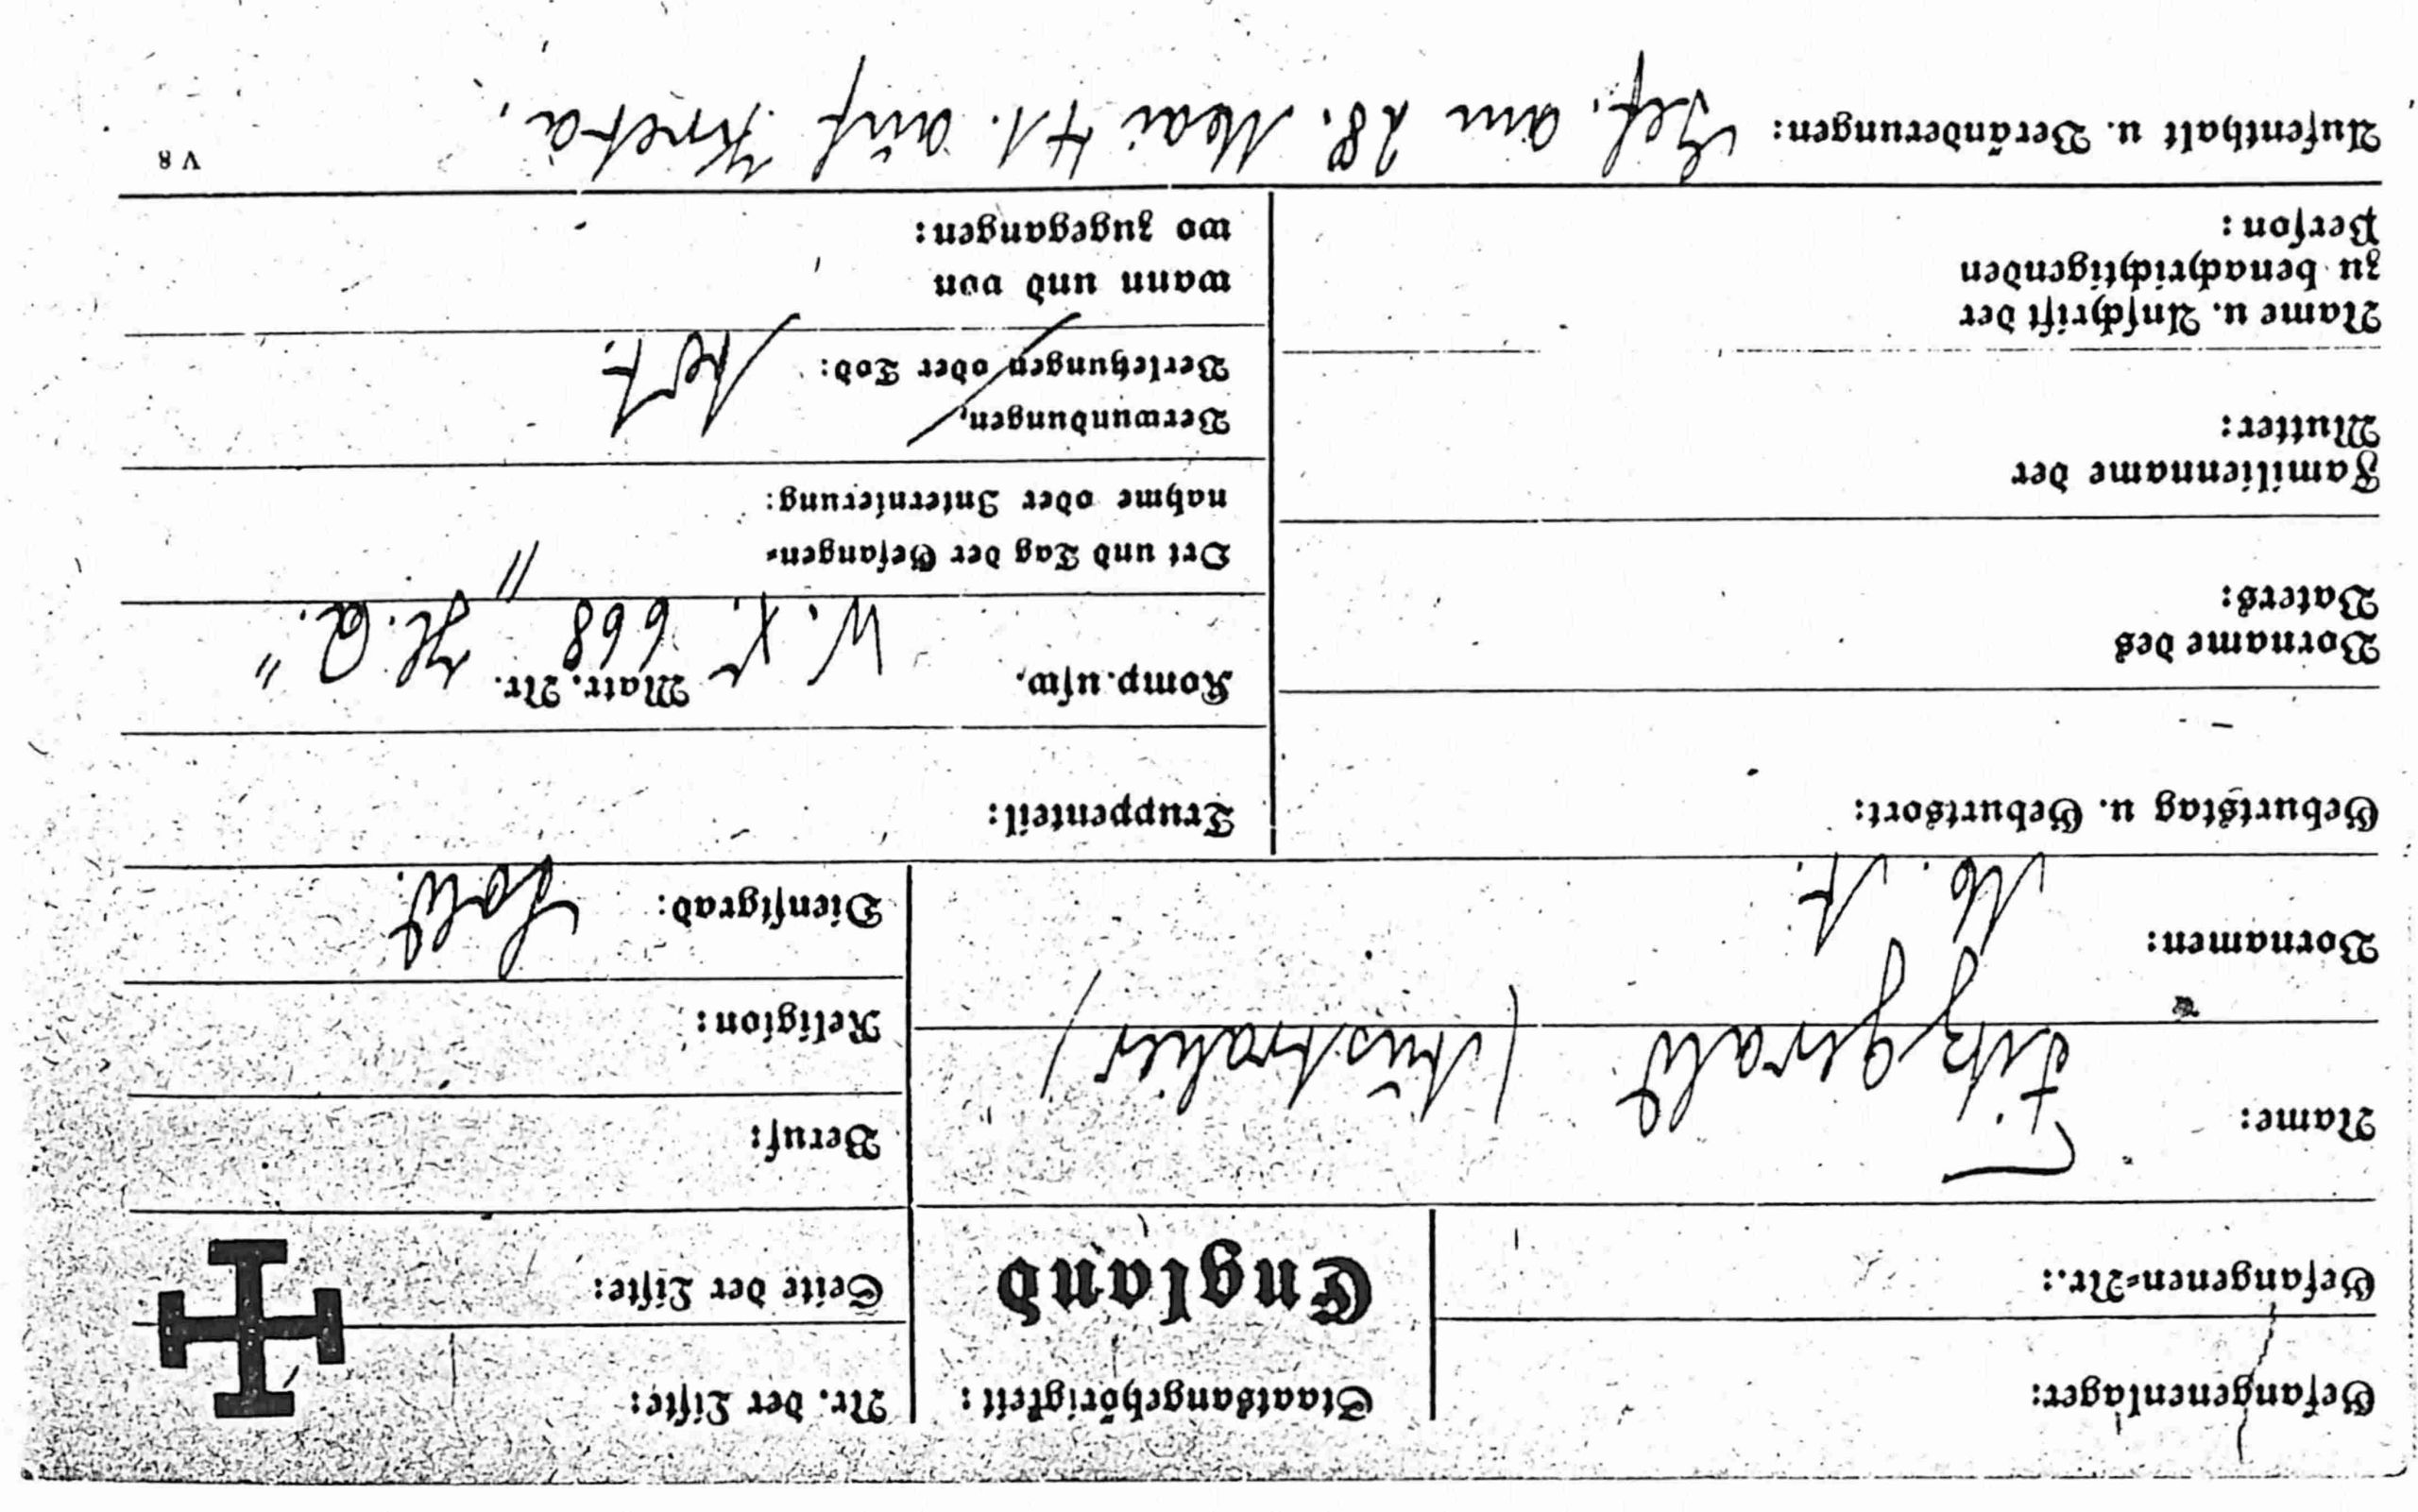 Gefangenenlager:
Staatsangehörigkeit:
England
Nr. der Liste:
Gefangenen-Nr.:
Seite der Liste:
Name: Fitzgerald (Australier)
Beruf:
Religion:
Vornamen: M. A.
Dienstgrad: Sold.
Geburtstag u. Geburtsort:
Truppenteil:
Vorname des
Vaters:
Komp. usw. W. X. Matr. Nr. 668 „H. Q."
Familienname der
Mutter:
Ort und Tag der Gefangen-
nahme oder Internierung:
Name u. Anschrift der
zu benachrichtigenden
Person:
Verwundungen,
Verletzungen oder Tod:
wann und von
wo zugegangen:
Aufenthalt u. Veränderungen: Gef. am 28. Mai 41. auf Kreta.
V 8